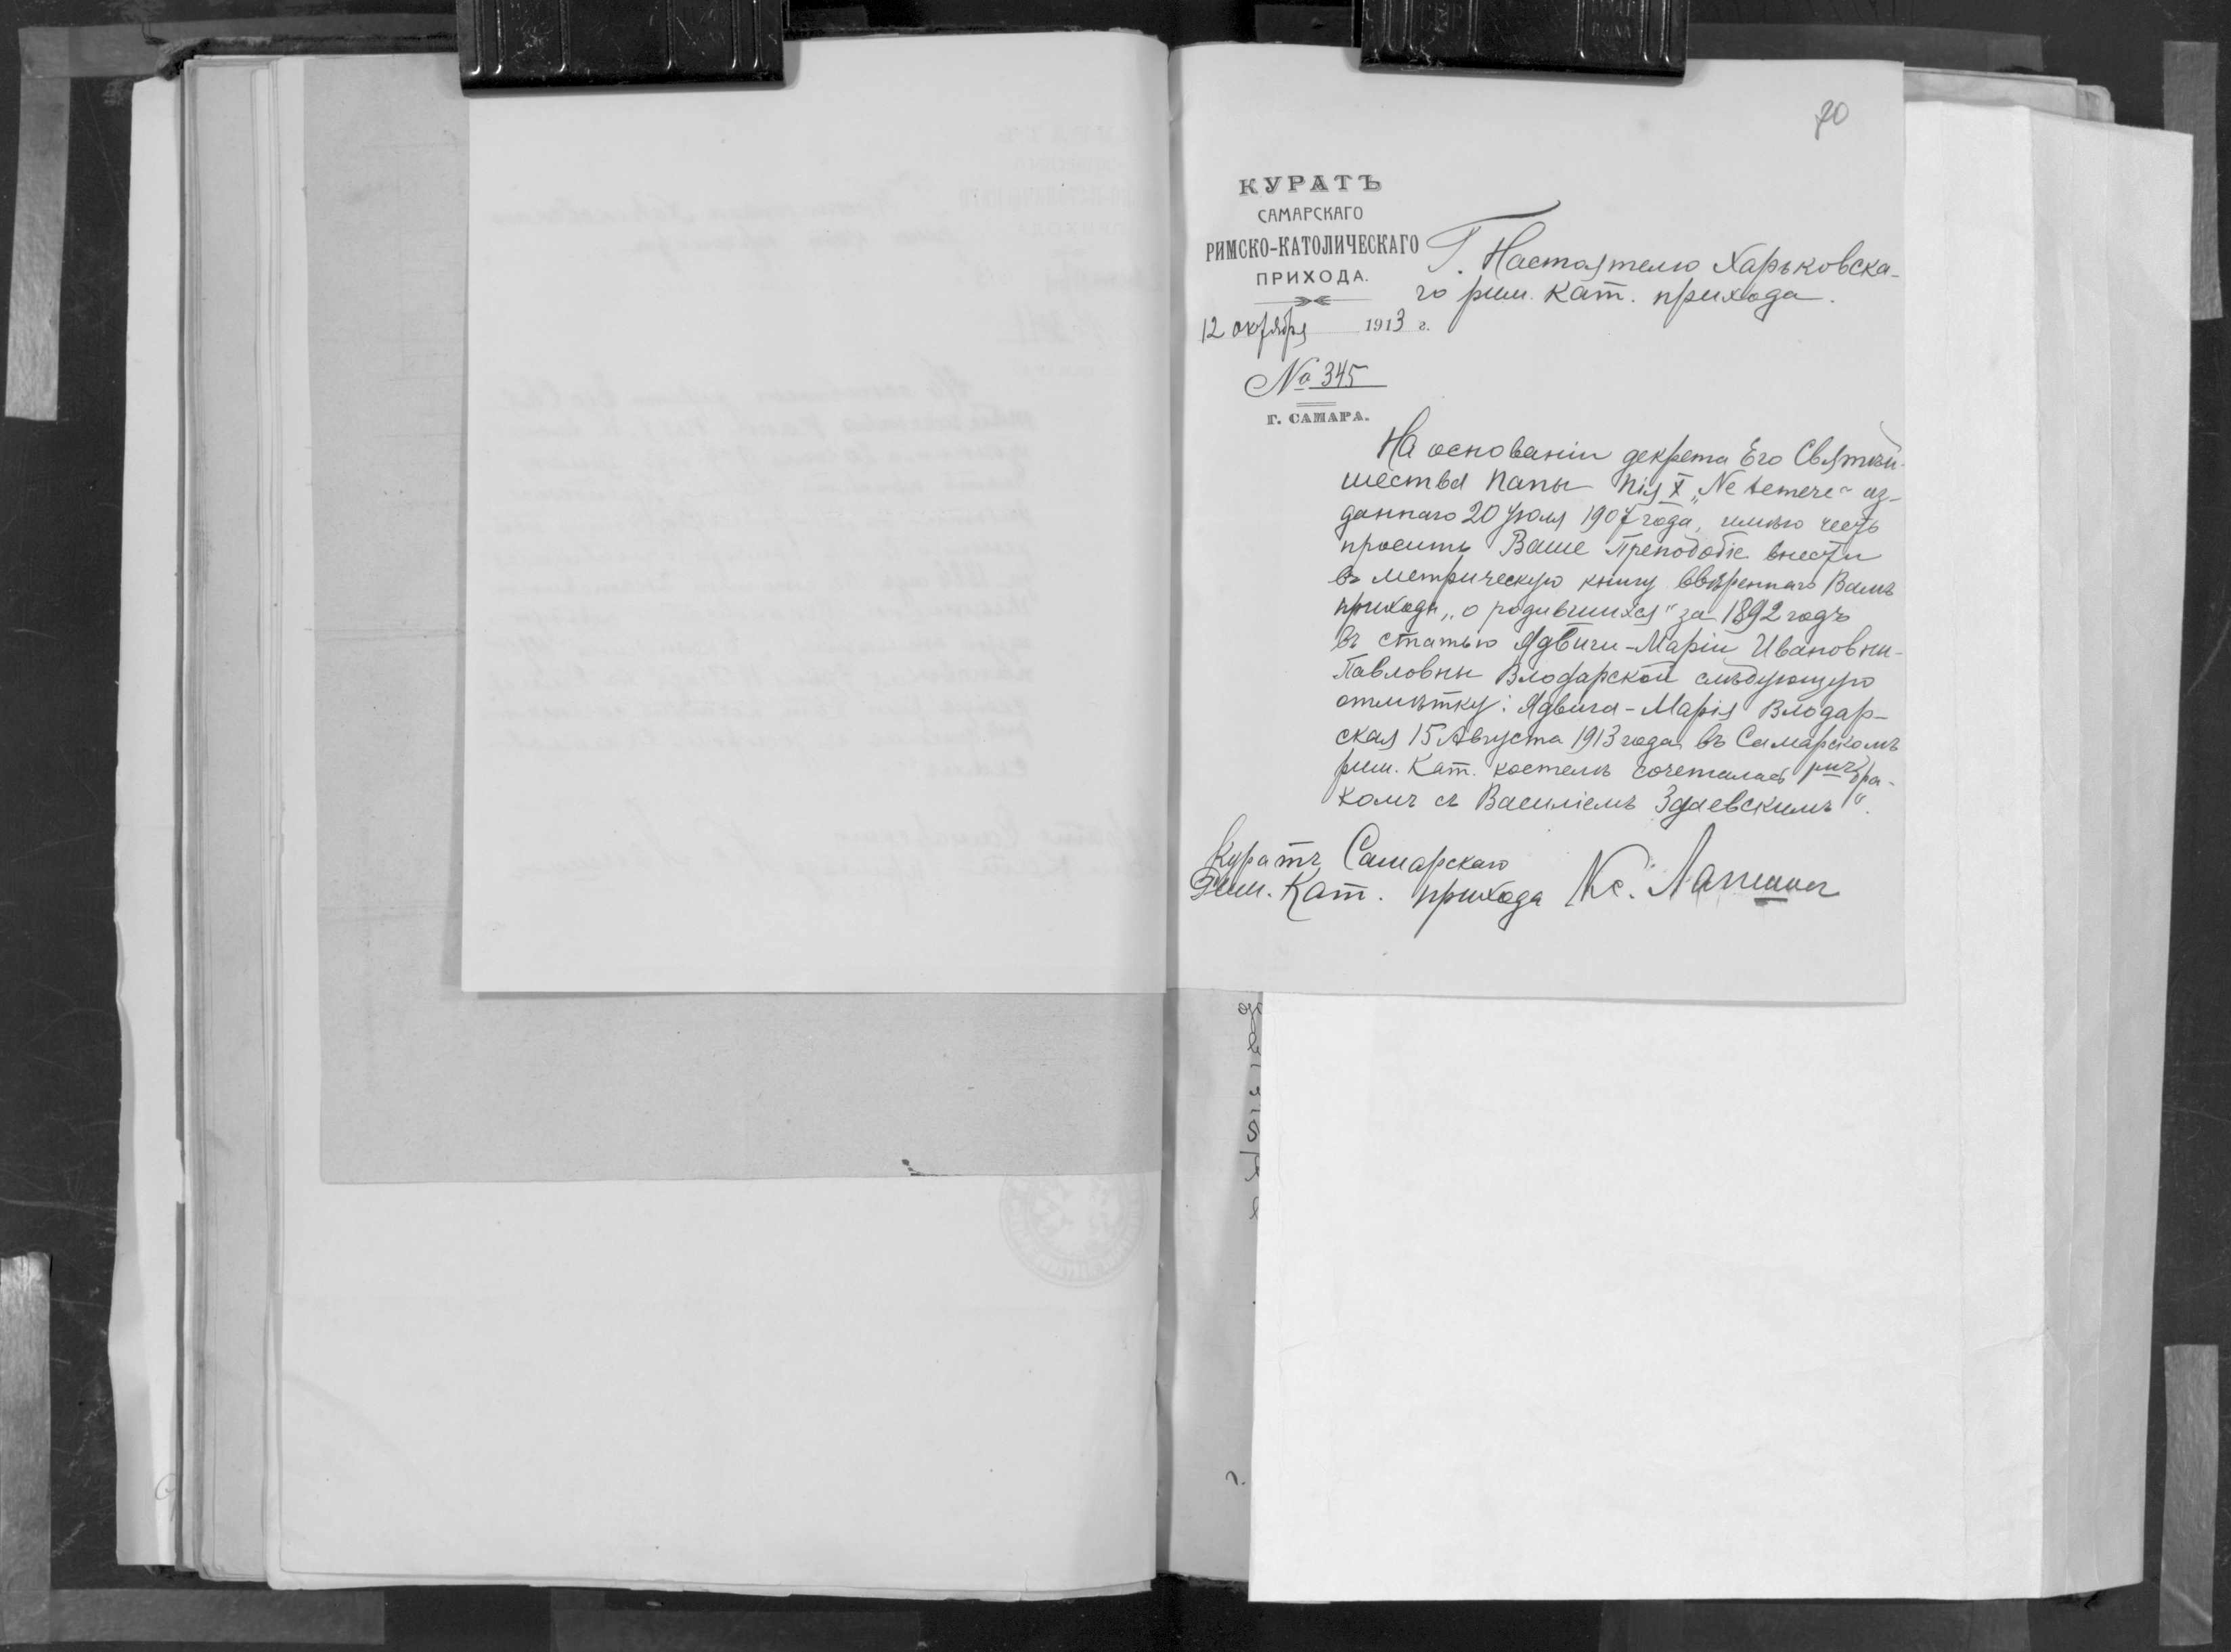 70
КУРАТЪ
САМАРСКАГО
РИМСКО-КАТОЛИЧЕСКАГО
ПРИХОДА.
12 октября 1913 г.
№ 345
Г. САМАРА.
Г. Настоятелю Харьковска-
го рим. Кат. прихода.
На основаніи декрета Его Святѣй-
шества Папы Пія X „Ne temere“ из-
даннаго 20 Іюля 1907 года, имѣю честь
просить Ваше Преподобіе внести
въ метрическую книгу ввѣреннаго Вамъ
прихода „о родившихся“ за 1892 годъ
въ статью Ядвиги-Маріи Ивановны-
Павловны Влодарской слѣдующую
отмѣтку: Ядвига-Марія Влодар-
ская 15 Августа 1913 года въ Самарскомъ
рим. Кат. костелѣ сочеталась бра-
комъ съ Василіемъ Здаевскимъ“.
Куратъ Самарскаго
Рим. Кат. прихода Кс. Лапшис